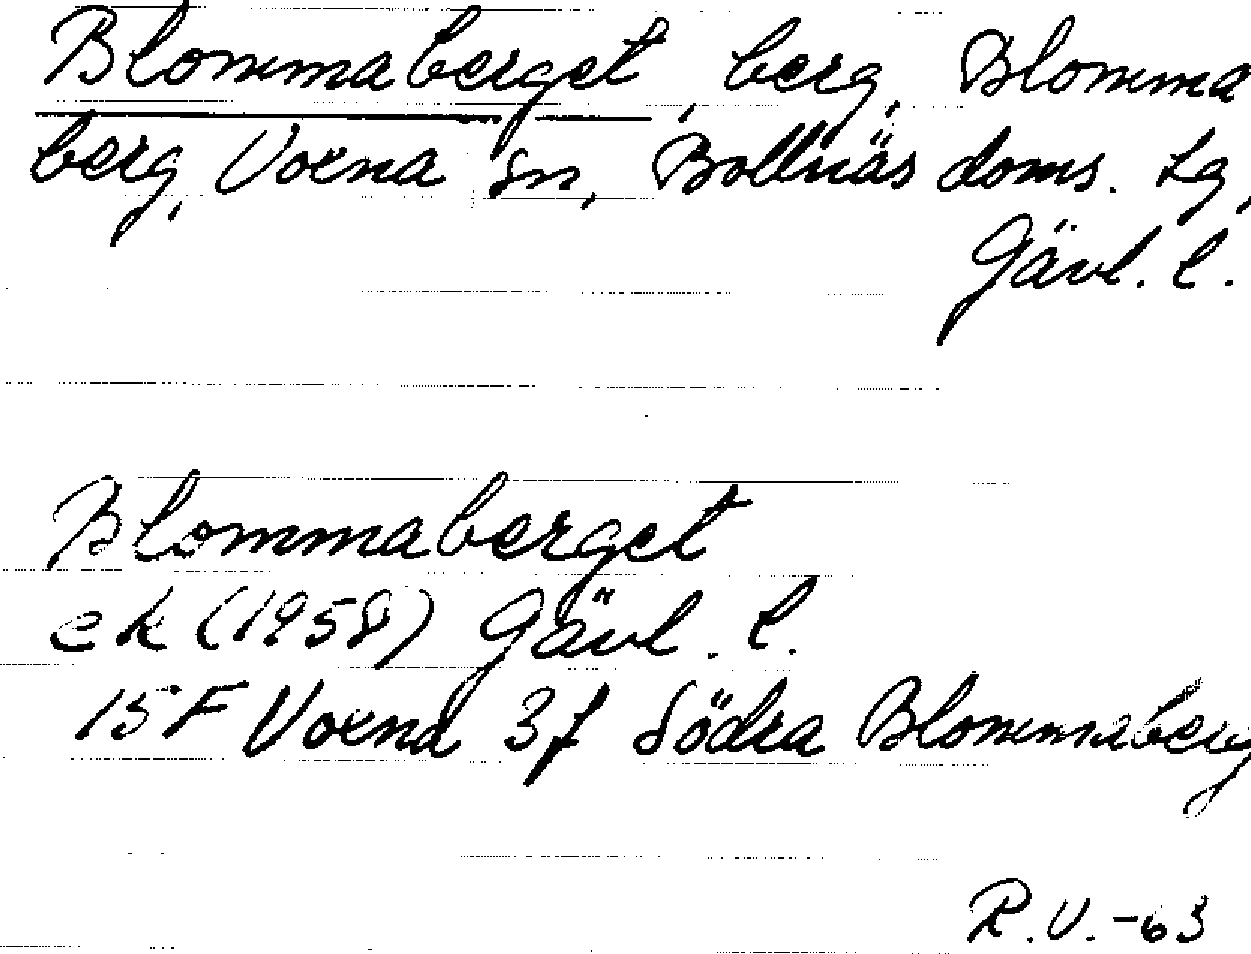 Blommaberget, berg, Blomma
berg, Voxna sn, Bollnäs doms. lg,
Gävl. l.
Blommaberget
ek (1958) Gävl. l.
15F Voxna 3f Södra Blommaberg
R.V.-63